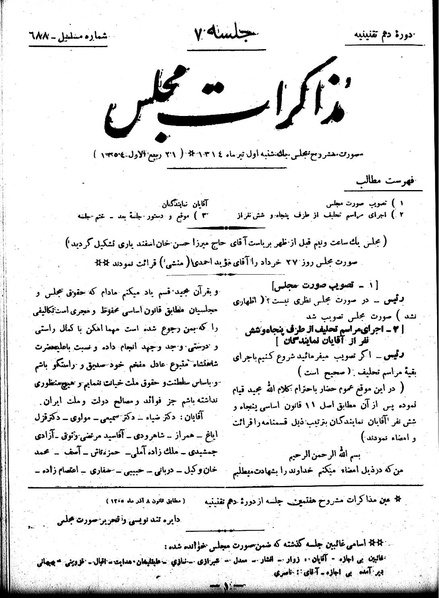 دورهٔ دهم تقنینیه
جلسه ۷
شماره مسلسل - ۶۸۸
مذاکرات مجلس
صورت مشروح مجلس یک شنبه اول تیر ماه ۱۳۱۴ * (۲۱ ربیع الاول ۱۳۵۴)
فهرست مطالب
۱ ) تصویب صورت مجلس
۲ ) اجرای مراسم تحلیف از طرف پنجاه و شش نفر از
آقایان نمایندگان
۳ ) موقع و دستور جلسهٔ بعد - ختم جلسه
( مجلس یک ساعت ونیم قبل از ظهر بریاست آقای حاج میرزا حسن خان اسفند یاری تشکیل گردید )
صورت مجلس روز ۲۷ خرداد را آقای مؤید احمدی ( منشی ) قرائت نمودند *
[ ۱ - تصویب صورت مجلس ]
رئیس - در صورت مجلس نظری نیست؟ ( اظهاری
نشد ) صورت مجلس تصویب شد
[ ۲ - اجرای مراسم تحلیف از طرف پنجاه وشش
نفر از آقایان نمایندگان ]
رئیس - اگر تصویب میفرمائید شروع کنیم باجرای
بقیهٔ مراسم تحلیف . ( صحیح است )
( در این موقع عموم حضار باحترام کلام الله مجید قیام
نموده پس از آن مطابق اصل ۱۱ قانون اساسی پنجاه و
شش نفر آقایان نمایندگان بترتیب ذیل قسمنامه را قرائت
و امضاء نمودند )
بسم الله الرحمن الرحیم
من که در ذیل امضاء میکنم خداوند را بشهادت میطلبم
و بقرآن مجید قسم یاد میکنم مادام که حقوق مجلس و
مجلسیان مطابق قانون اساسی محفوظ و مجری است تکالیفی
را که بمن رجوع شده است مهما امکن با کمال راستی
و درستی و جد و جهد انجام داده و نسبت باعلیحضرت
شاهنشاه متبوع عادل مفخم خود صدیق و راستگو باشم
و باساس سلطنت و حقوق ملت خیانت ننمایم و هیچ منظوری
نداشته باشم جز فوائد و مصالح دولت و ملت ایران .
آقایان : دکتر ضیاء - دکتر سمیعی - مولوی - دکتر قزل
ایاغ - همراز - شاهرودی - آقاسید مرتضی وثوقی - آزادی
جمشیدی - ملک زاده آملی - حمزه تاش - آصف - محمد
خان وکیل - دربانی - حبیبی - حفاری - اعتصام زاده -
* عین مذاکرات مشروح هفتمین جلسه از دورهٔ دهم تقنینیه
( مطابق قانون ۸ آذر ماه ۱۳۰۵ )
دایره تند نویسی و تحریر صورت مجلس
* اسامی غائبین جلسه گذشته که ضمن صورت مجلس خوانده شده :
غائبین بی اجازه - آقایان : زوار - افشار - معدل - شیرازی - نمازی - هدایت - اقبال - قزوینی -
دیر آمده بی اجازه - آقای : ناصری
- ۱ -